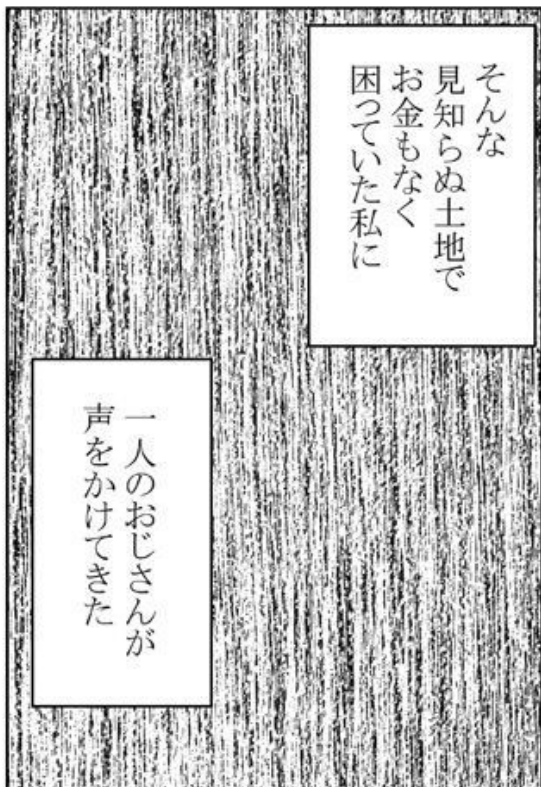 そんな
見知らぬ土地で
お金もなく
困っていた私に
一人のおじさんが
声をかけてきた